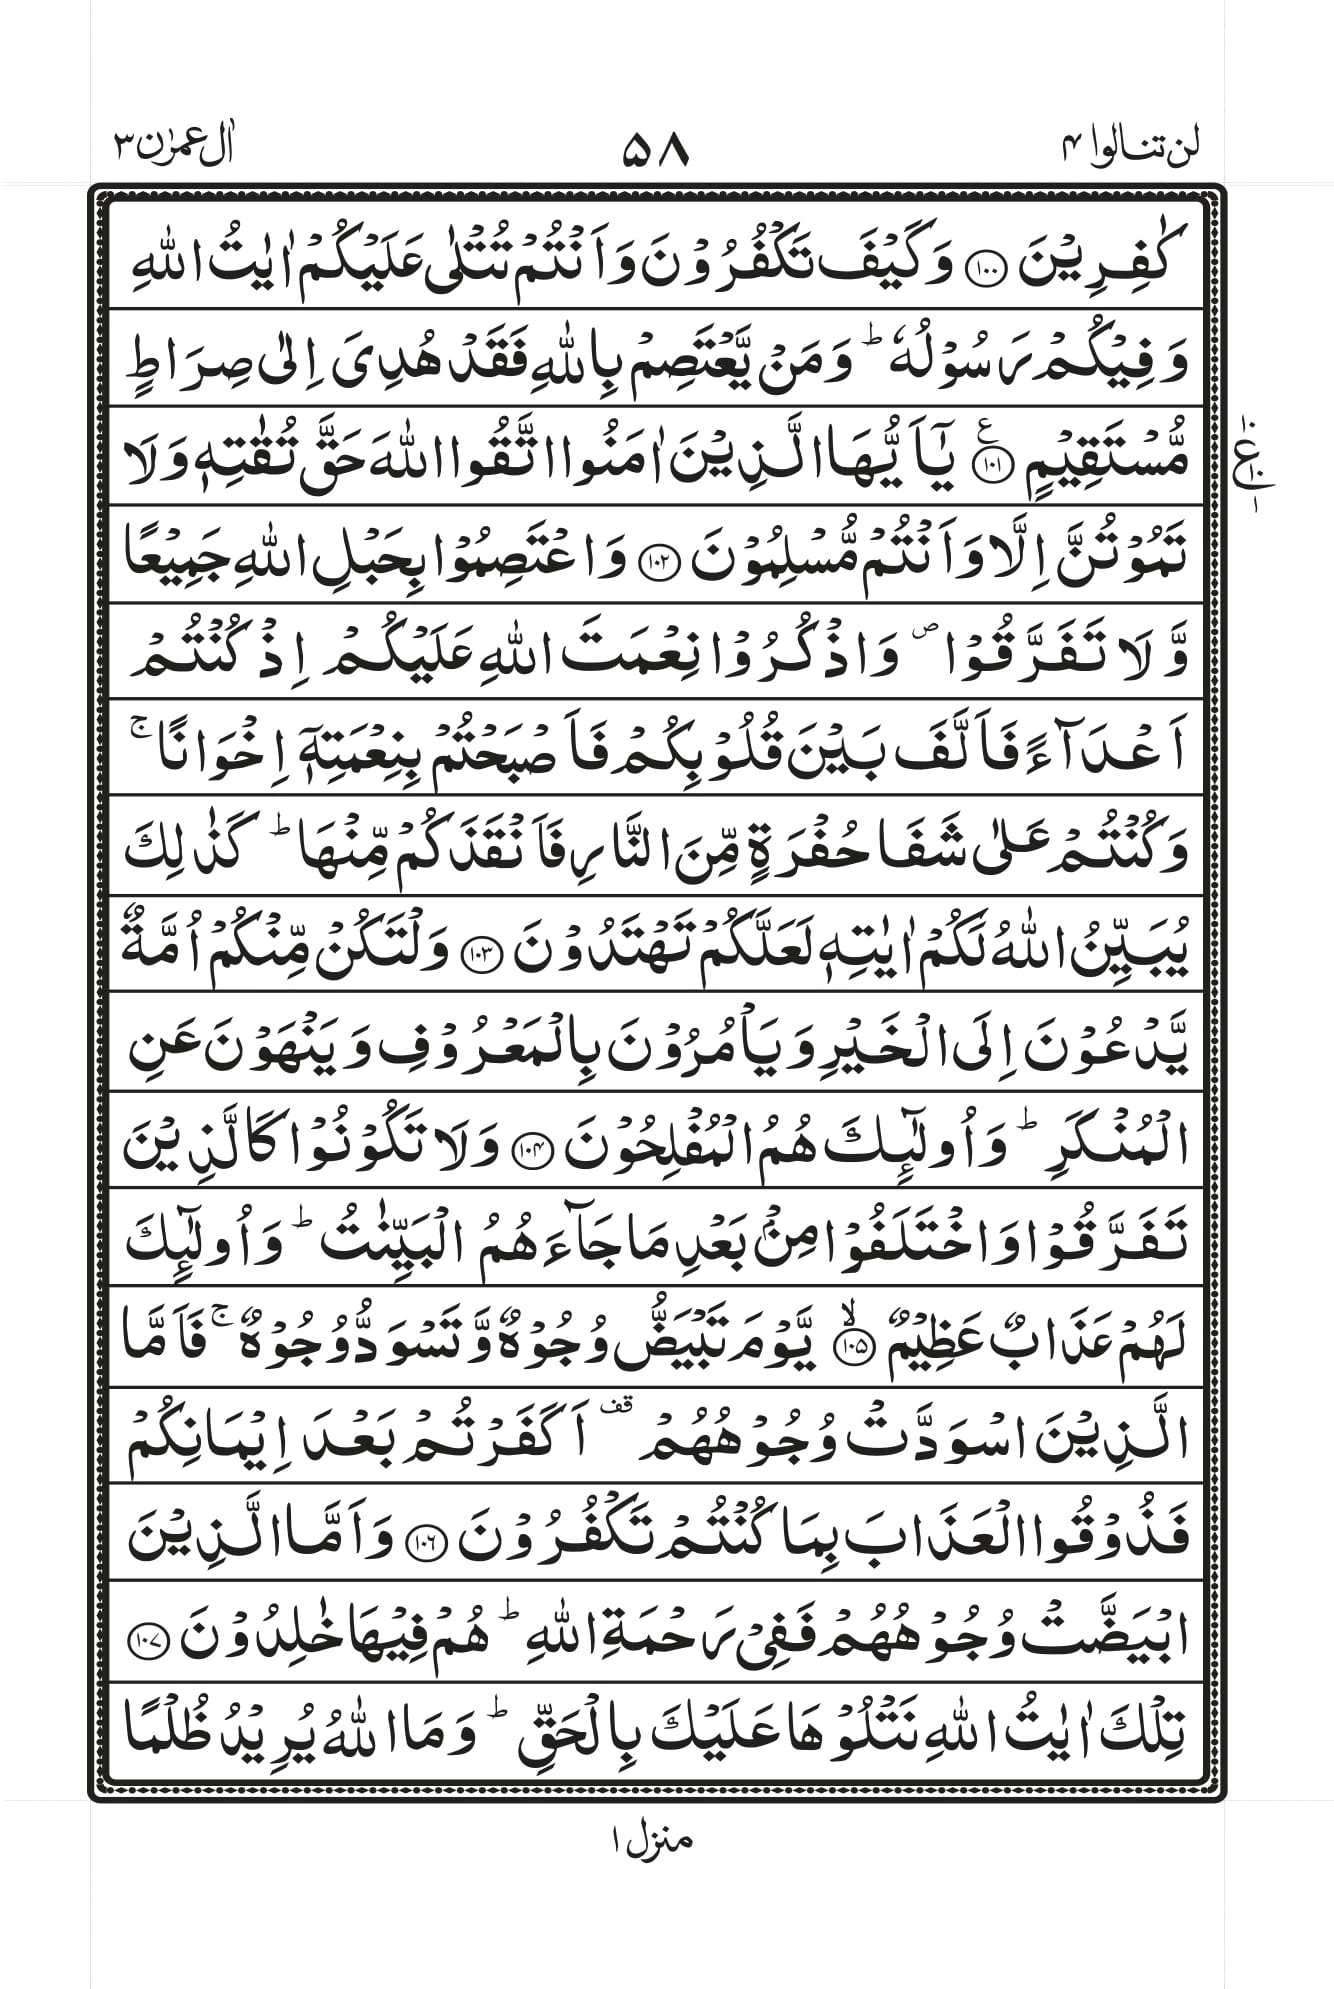 لن تنالوا ۴
۵۸
اٰل عمرٰن ۳
كٰفِرِيْنَ ۝۱۰۰ وَكَيْفَ تَكْفُرُوْنَ وَاَنْتُمْ تُتْلٰى عَلَيْكُمْ اٰيٰتُ اللّٰهِ
وَفِيْكُمْ رَسُوْلُهٗ ؕ وَمَنْ يَّعْتَصِمْ بِاللّٰهِ فَقَدْ هُدِىَ اِلٰى صِرَاطٍ
مُّسْتَقِيْمٍ ۝۱۰۱ ع يٰۤاَيُّهَا الَّذِيْنَ اٰمَنُوا اتَّقُوا اللّٰهَ حَقَّ تُقٰتِهٖ وَلَا
تَمُوْتُنَّ اِلَّا وَاَنْتُمْ مُّسْلِمُوْنَ ۝۱۰۲ وَاعْتَصِمُوْا بِحَبْلِ اللّٰهِ جَمِيْعًا
وَّلَا تَفَرَّقُوْا ص وَاذْكُرُوْا نِعْمَتَ اللّٰهِ عَلَيْكُمْ اِذْ كُنْتُمْ
اَعْدَآءً فَاَلَّفَ بَيْنَ قُلُوْبِكُمْ فَاَصْبَحْتُمْ بِنِعْمَتِهٖۤ اِخْوَانًا ۚ
وَكُنْتُمْ عَلٰى شَفَا حُفْرَةٍ مِّنَ النَّارِ فَاَنْقَذَكُمْ مِّنْهَا ؕ كَذٰلِكَ
يُبَيِّنُ اللّٰهُ لَكُمْ اٰيٰتِهٖ لَعَلَّكُمْ تَهْتَدُوْنَ ۝۱۰۳ وَلْتَكُنْ مِّنْكُمْ اُمَّةٌ
يَّدْعُوْنَ اِلَى الْخَيْرِ وَيَاْمُرُوْنَ بِالْمَعْرُوْفِ وَيَنْهَوْنَ عَنِ
الْمُنْكَرِ ؕ وَاُولٰٓئِكَ هُمُ الْمُفْلِحُوْنَ ۝۱۰۴ وَلَا تَكُوْنُوْا كَالَّذِيْنَ
تَفَرَّقُوْا وَاخْتَلَفُوْا مِنْۢ بَعْدِ مَا جَآءَهُمُ الْبَيِّنٰتُ ؕ وَاُولٰٓئِكَ
لَهُمْ عَذَابٌ عَظِيْمٌ ۝۱۰۵ ۙ يَّوْمَ تَبْيَضُّ وُجُوْهٌ وَّتَسْوَدُّ وُجُوْهٌ ۚ فَاَمَّا
الَّذِيْنَ اسْوَدَّتْ وُجُوْهُهُمْ قف اَكَفَرْتُمْ بَعْدَ اِيْمَانِكُمْ
فَذُوْقُوا الْعَذَابَ بِمَا كُنْتُمْ تَكْفُرُوْنَ ۝۱۰۶ وَاَمَّا الَّذِيْنَ
ابْيَضَّتْ وُجُوْهُهُمْ فَفِىْ رَحْمَةِ اللّٰهِ ؕ هُمْ فِيْهَا خٰلِدُوْنَ ۝۱۰۷
تِلْكَ اٰيٰتُ اللّٰهِ نَتْلُوْهَا عَلَيْكَ بِالْحَقِّ ؕ وَمَا اللّٰهُ يُرِيْدُ ظُلْمًا
۱۰
ع
۱۰
۱
منزل ۱